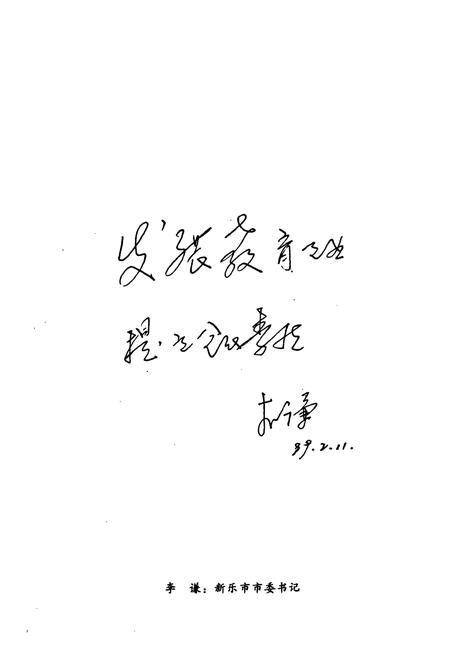 发展教育事业
提高全民素质
李谦
99.2.11.
李　谦：新乐市市委书记